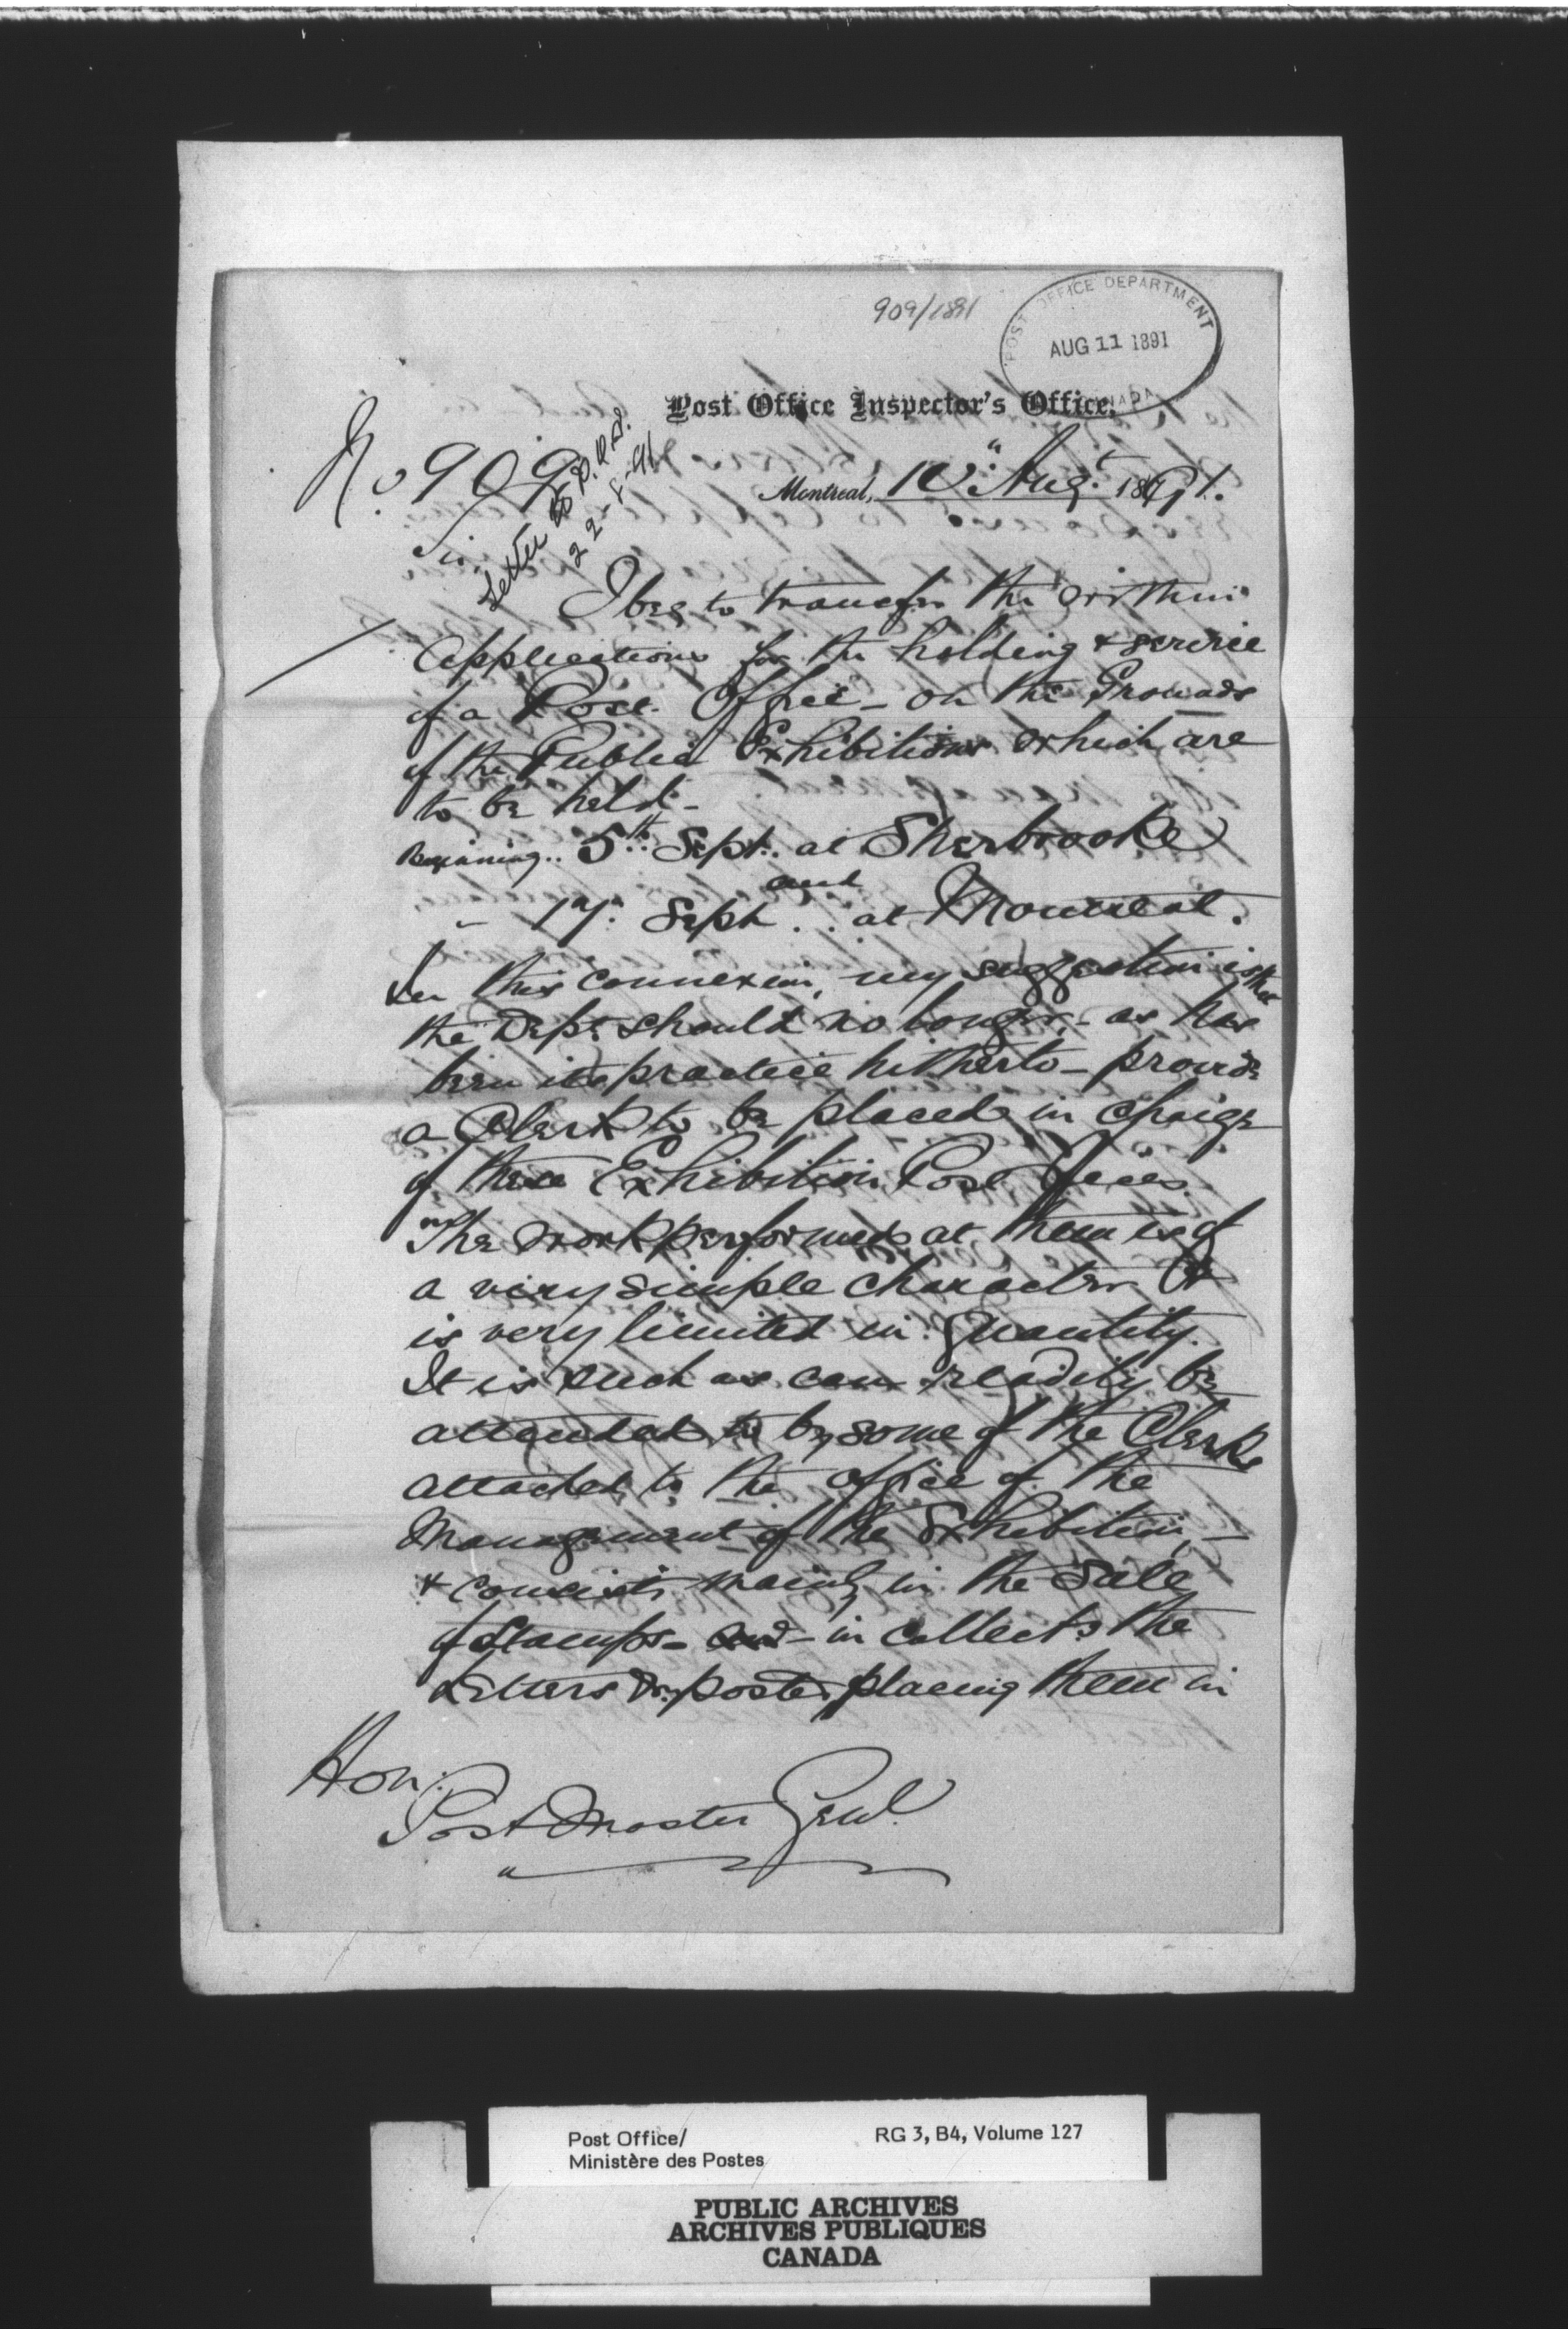 909/1891
POST OFFICE DEPARTMENT
AUG 11 1891
CANADA
Post Office Inspector's Office,
No 909
Letter to
22-8-91
Montreal, 10" Augt. 1891.
Sir,
I beg to transfer the within
Applications for the holding & service
of a Post Office - on the Grounds
of the Public Exhibitions which are
to be held -
Beginning .. 5th Sept. at Sherbrooke
and
" 17: Sept .. at Montreal.
In this connexion, my suggestion is that
the Dept. should no longer, - as has
been its practice hitherto - provide
a Clerk to be placed in charge
of these Exhibition Post Offices.
The work performed at them is of
a very simple character &
is very limited in quantity.
It is such as can readily be
attended to by some of the Clerks
attached to the office of the
Management of the Exhibition, -
& consists mainly in the Sale
of Stamps - and - in collectg the
Letters posted, placing them in
Hon:
Post Master Genl.
Post Office/
Ministère des Postes
RG 3, B4, Volume 127
PUBLIC ARCHIVES
ARCHIVES PUBLIQUES
CANADA